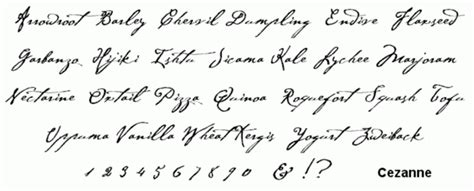 Arrowroot Barley Chervil Dumpling Endive Flaxseed
Garbanzo Hijiki Ishtu Jicama Kale Lychee Marjoram
Nectarine Oxtail Pizza Quinoa Roquefort Squash Tofu
Uppuma Vanilla Wheat Xergis Yogurt Zweiback
1 2 3 4 5 6 7 8 9 0 & !? Cezanne